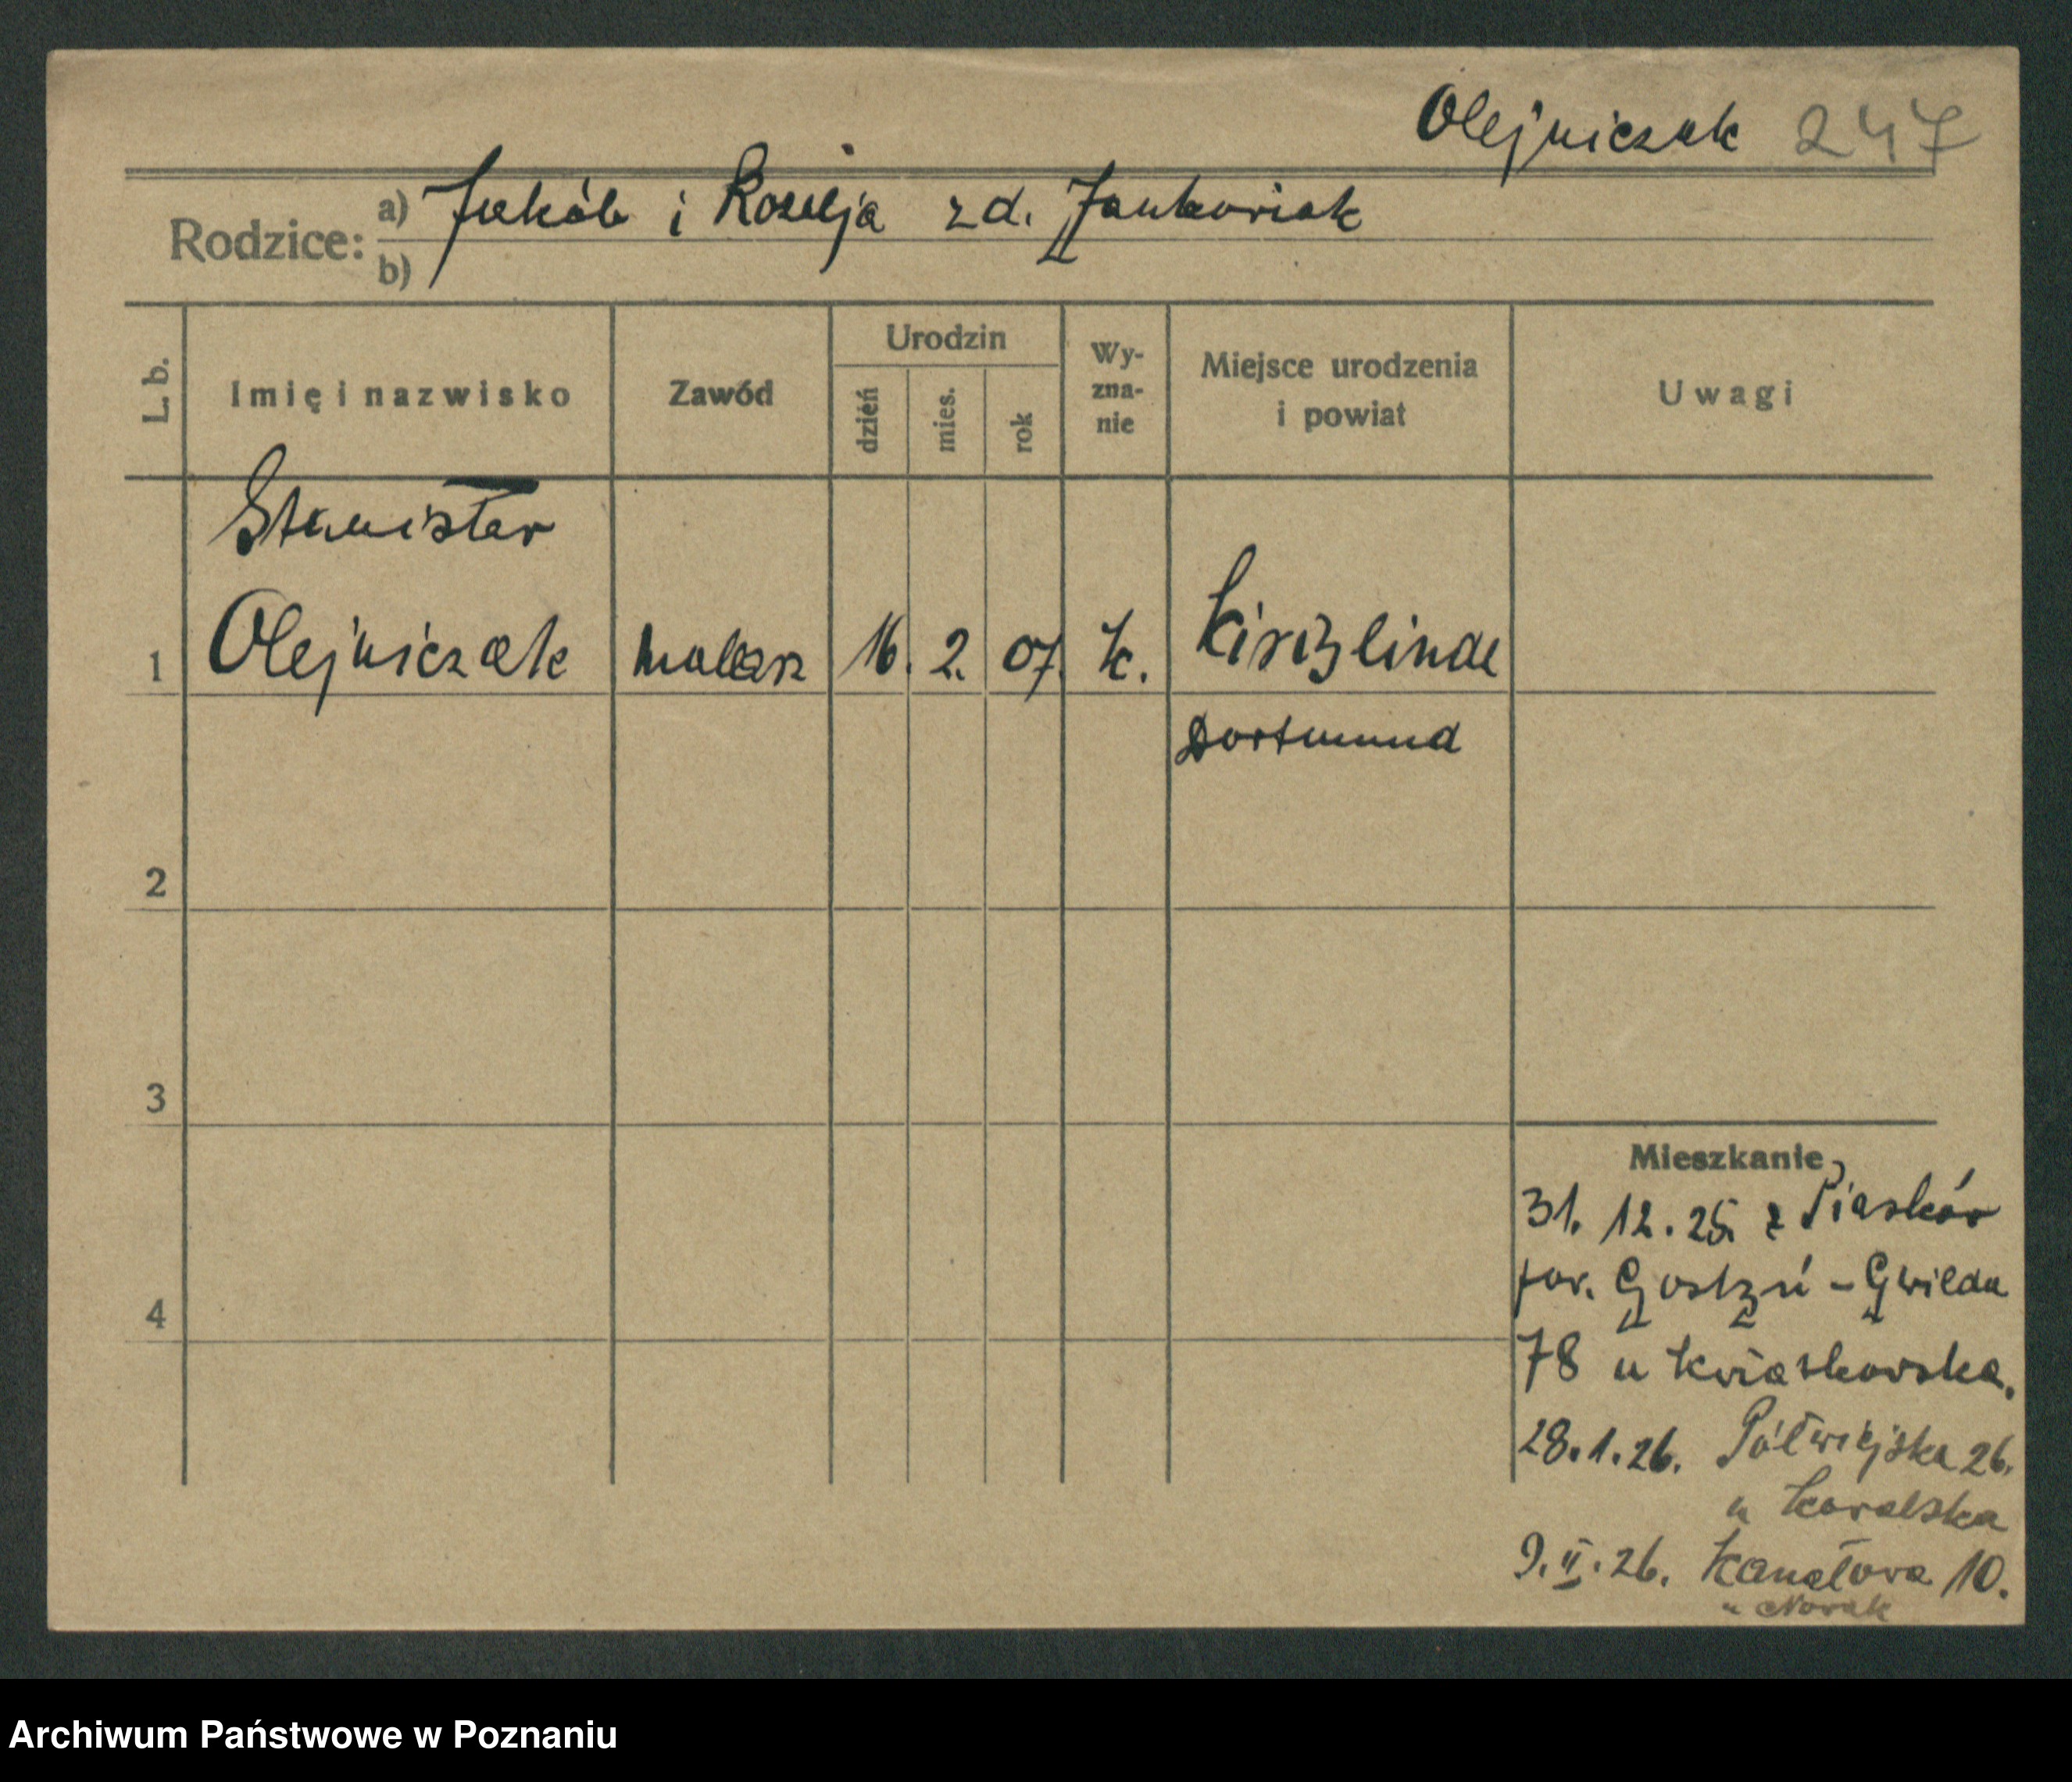 Olejniczak 247
Rodzice: a) Jakób i Rozalja z d. Jankowiak
b)
L. b. Imię i nazwisko Zawód Urodzin dzień mies. rok Wyznanie Miejsce urodzenia i powiat Uwagi
Stanisław
1 Olejniczak malarz 16. 2. 07. k. Kirchlinde
Dortmund
2
3
Mieszkanie
31. 12. 25. z Piasków
pow. Gostyń - Gwilda
4
78 u Kwiatkowska.
28.1.26. Półwiejska 26.
u Kowalska
9.II.26. Kanałowa 10.
u Nowak
Archiwum Państwowe w Poznaniu